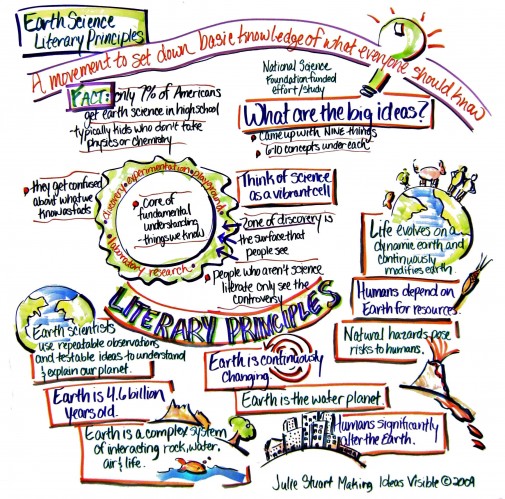 Earth Science
Literary Principles
A movement to set down basic knowledge of what everyone should know
FACT: only 7% of Americans
get earth science in high school
- typically kids who don't take
physics or chemistry
National Science
Foundation funded
effort/study
What are the big ideas?
• came up with NINE things
• 6-10 concepts under each
• they get confused
about what we
know as facts
discovery • experimentation • playground
laboratory research
• core of
fundamental
understanding
- things we know
Think of science
as a vibrant cell
• zone of discovery is
the surface that
people see
• people who aren't science
literate only see the
controversy
LITERARY PRINCIPLES
Life evolves on a
dynamic earth and
continuously
modifies earth.
Humans depend on
Earth for resources.
Natural hazards pose
risks to humans.
Earth scientists
use repeatable observations
and testable ideas to understand
& explain our planet.
Earth is continuously
changing.
Earth is 4.6 billion
years old.
Earth is the water planet
Earth is a complex system
of interacting rock, water,
air & life.
Humans significantly
alter the Earth.
Julie Stuart Making Ideas Visible © 2009